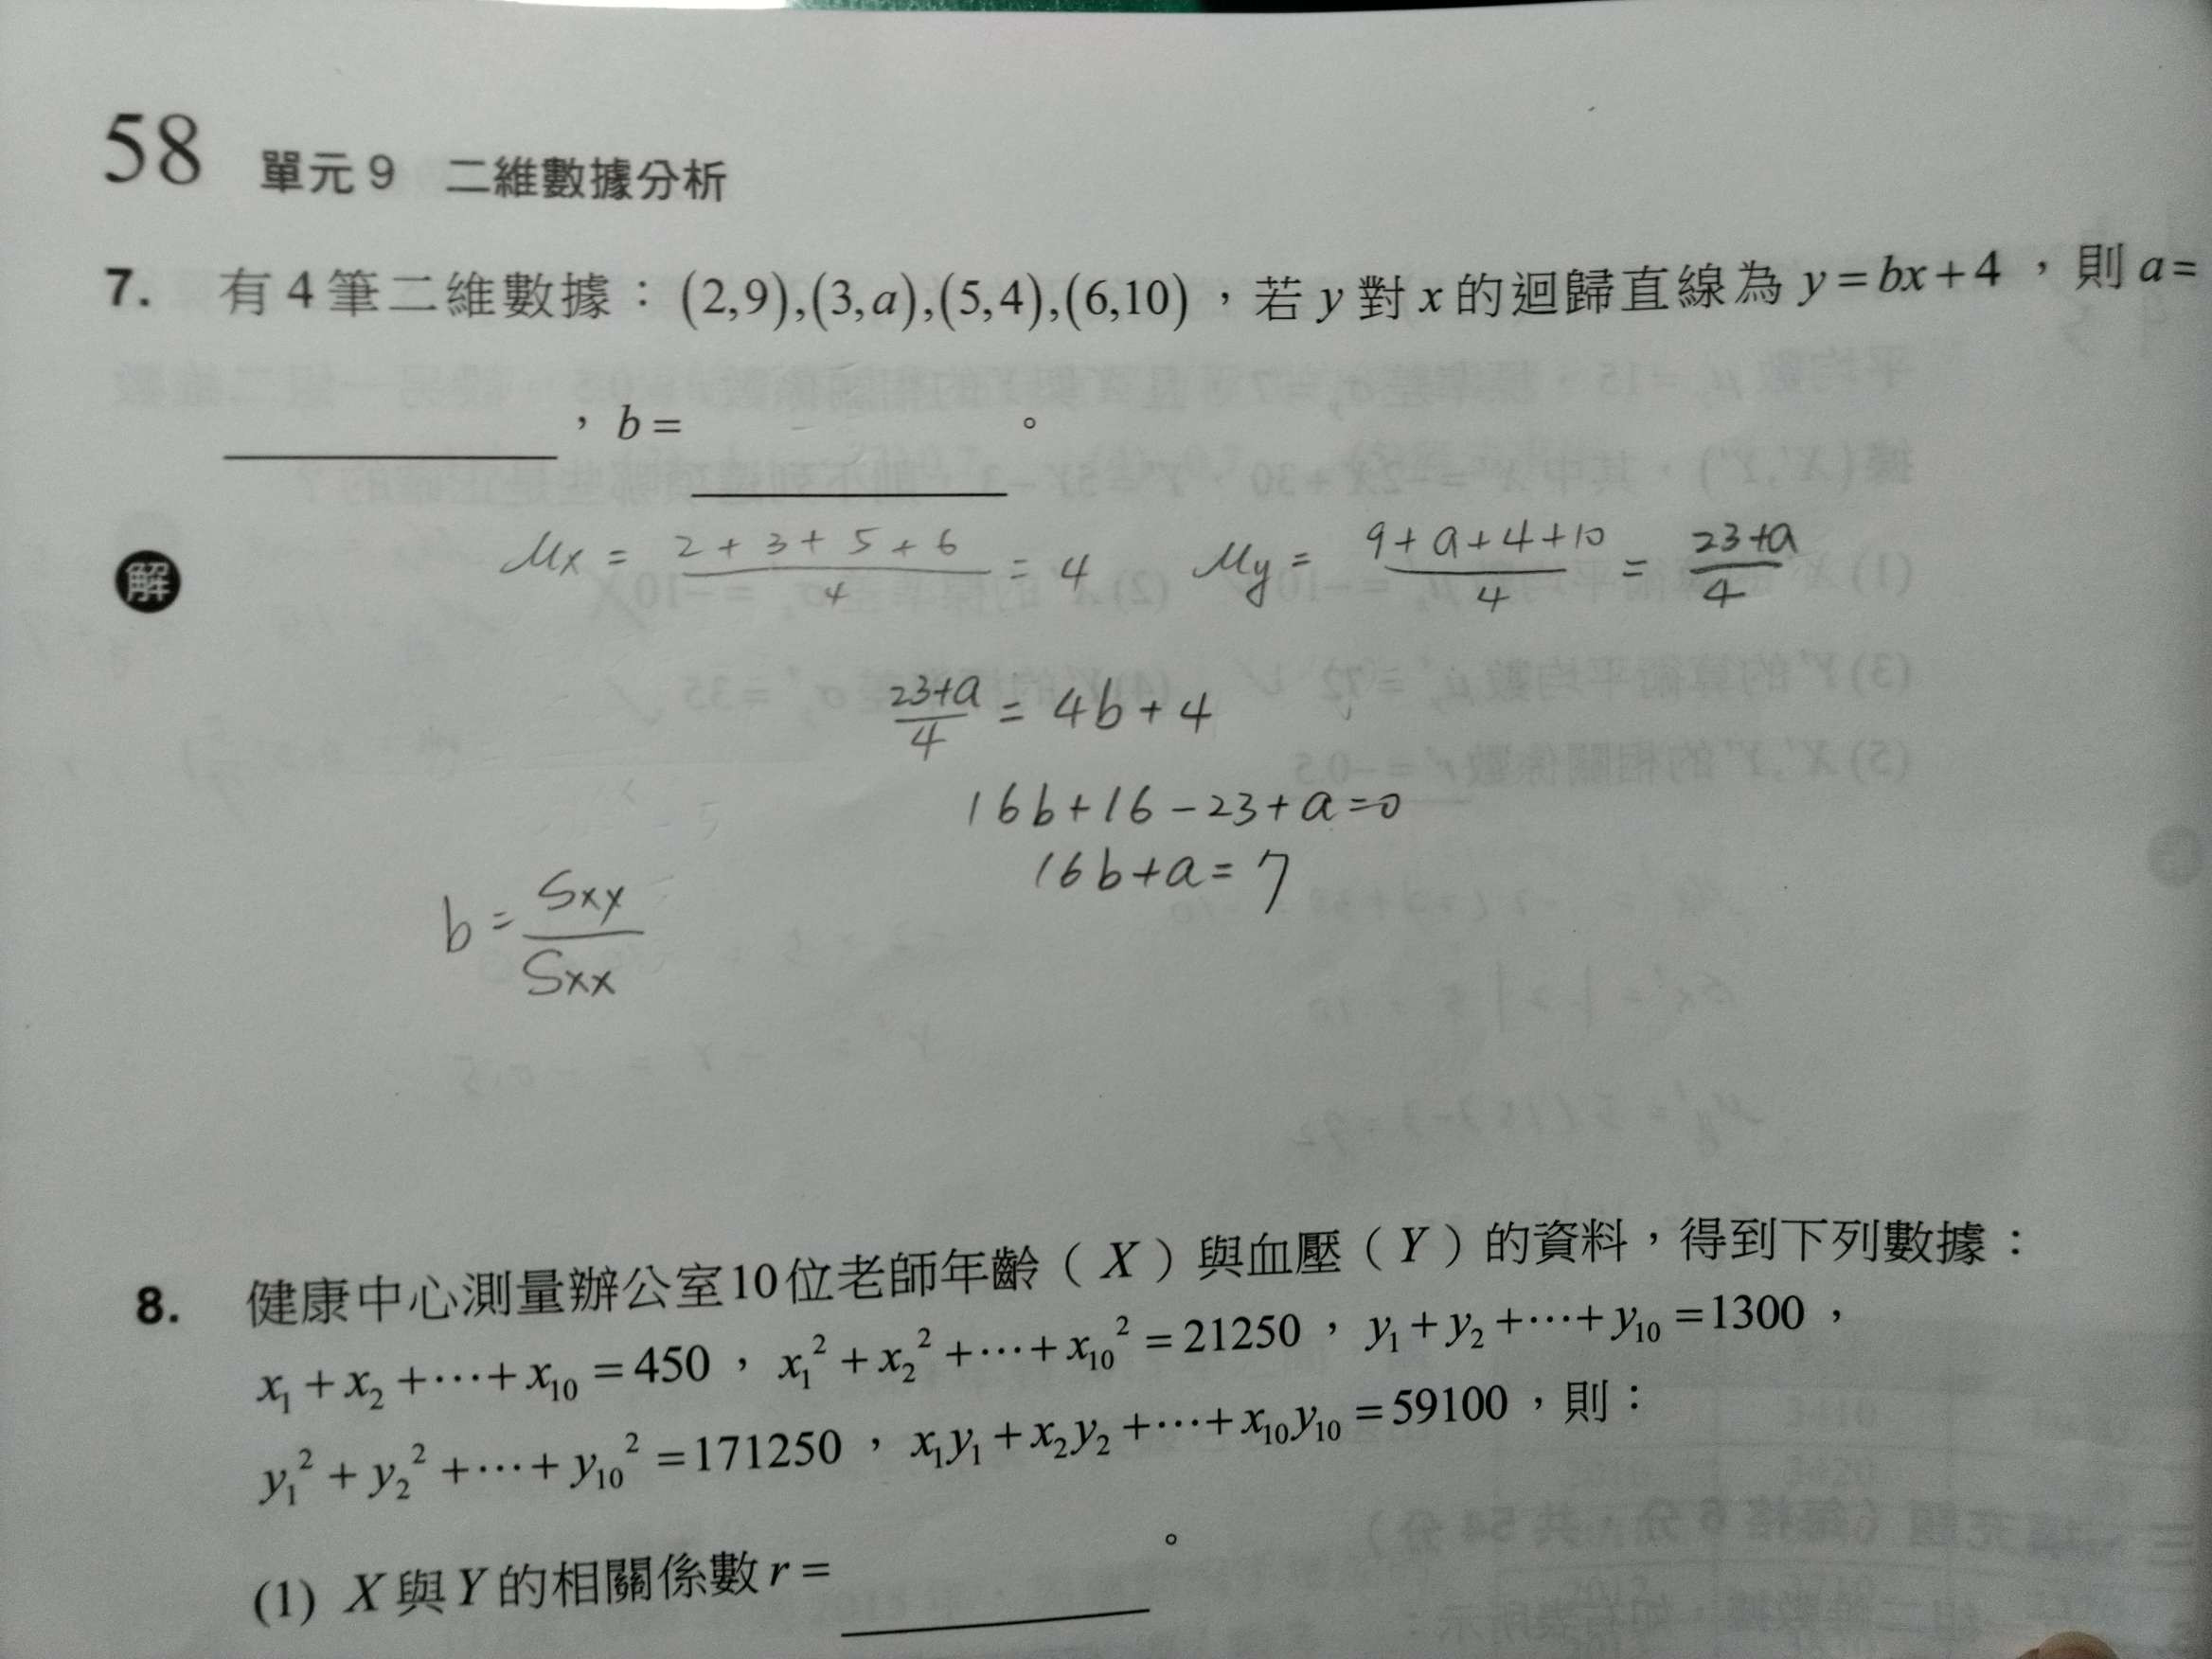 58 單元9 二維數據分析
7. 有4筆二維數據：(2,9),(3,a),(5,4),(6,10)，若y對x的迴歸直線為y=bx+4，則a=
，b= 。
解 μx = (2+3+5+6)/4 = 4 μy = (9+a+4+10)/4 = (23+a)/4
(23+a)/4 = 4b+4
16b+16-23+a=0
16b+a=7
b = Sxy/Sxx
8. 健康中心測量辦公室10位老師年齡（X）與血壓（Y）的資料，得到下列數據：
x₁+x₂+⋯+x₁₀=450，x₁²+x₂²+⋯+x₁₀²=21250，y₁+y₂+⋯+y₁₀=1300，
y₁²+y₂²+⋯+y₁₀²=171250，x₁y₁+x₂y₂+⋯+x₁₀y₁₀=59100，則：
(1) X與Y的相關係數r= 。